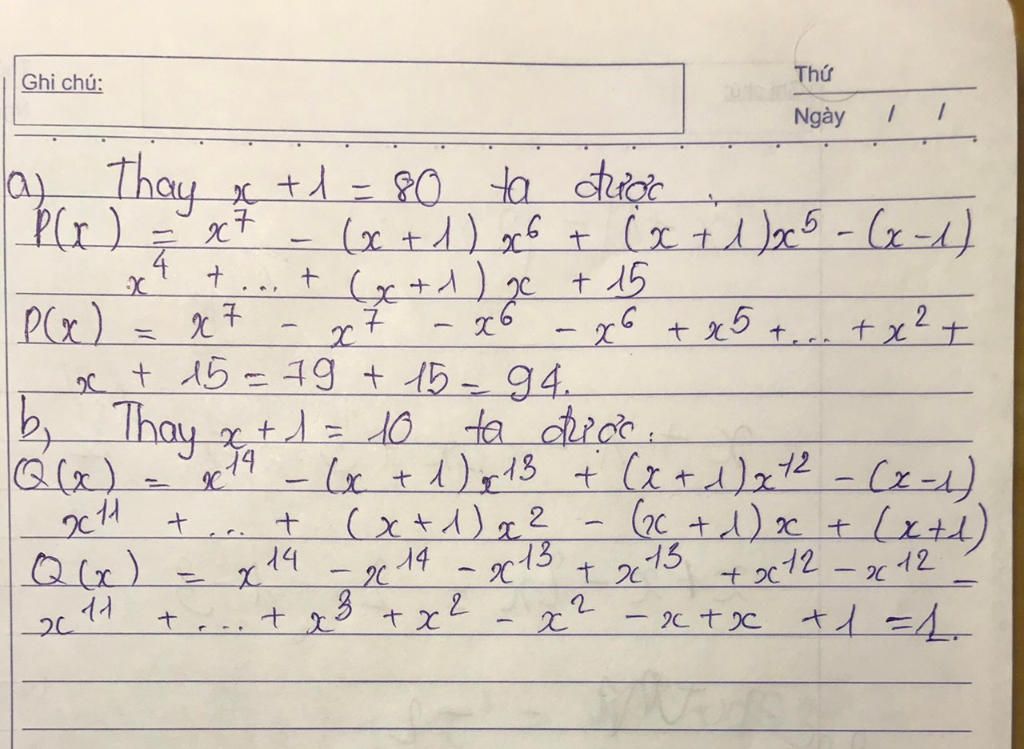 Ghi chú:
Thứ
Ngày / /
a) Thay x + 1 = 80 ta được :
P(x) = x⁷ - (x + 1) x⁶ + (x + 1)x⁵ - (x - 1)
x⁴ + ... + (x + 1) x + 15
P(x) = x⁷ - x⁷ - x⁶ - x⁶ + x⁵ + ... + x² +
x + 15 = 79 + 15 = 94.
b, Thay x + 1 = 10 ta được :
Q(x) = x¹⁴ - (x + 1) x¹³ + (x + 1)x¹² - (x - 1)
x¹¹ + ... + (x + 1) x² - (x + 1) x + (x + 1)
Q(x) = x¹⁴ - x¹⁴ - x¹³ + x¹³ + x¹² - x¹² -
x¹¹ + ... + x³ + x² - x² - x + x + 1 = 1.